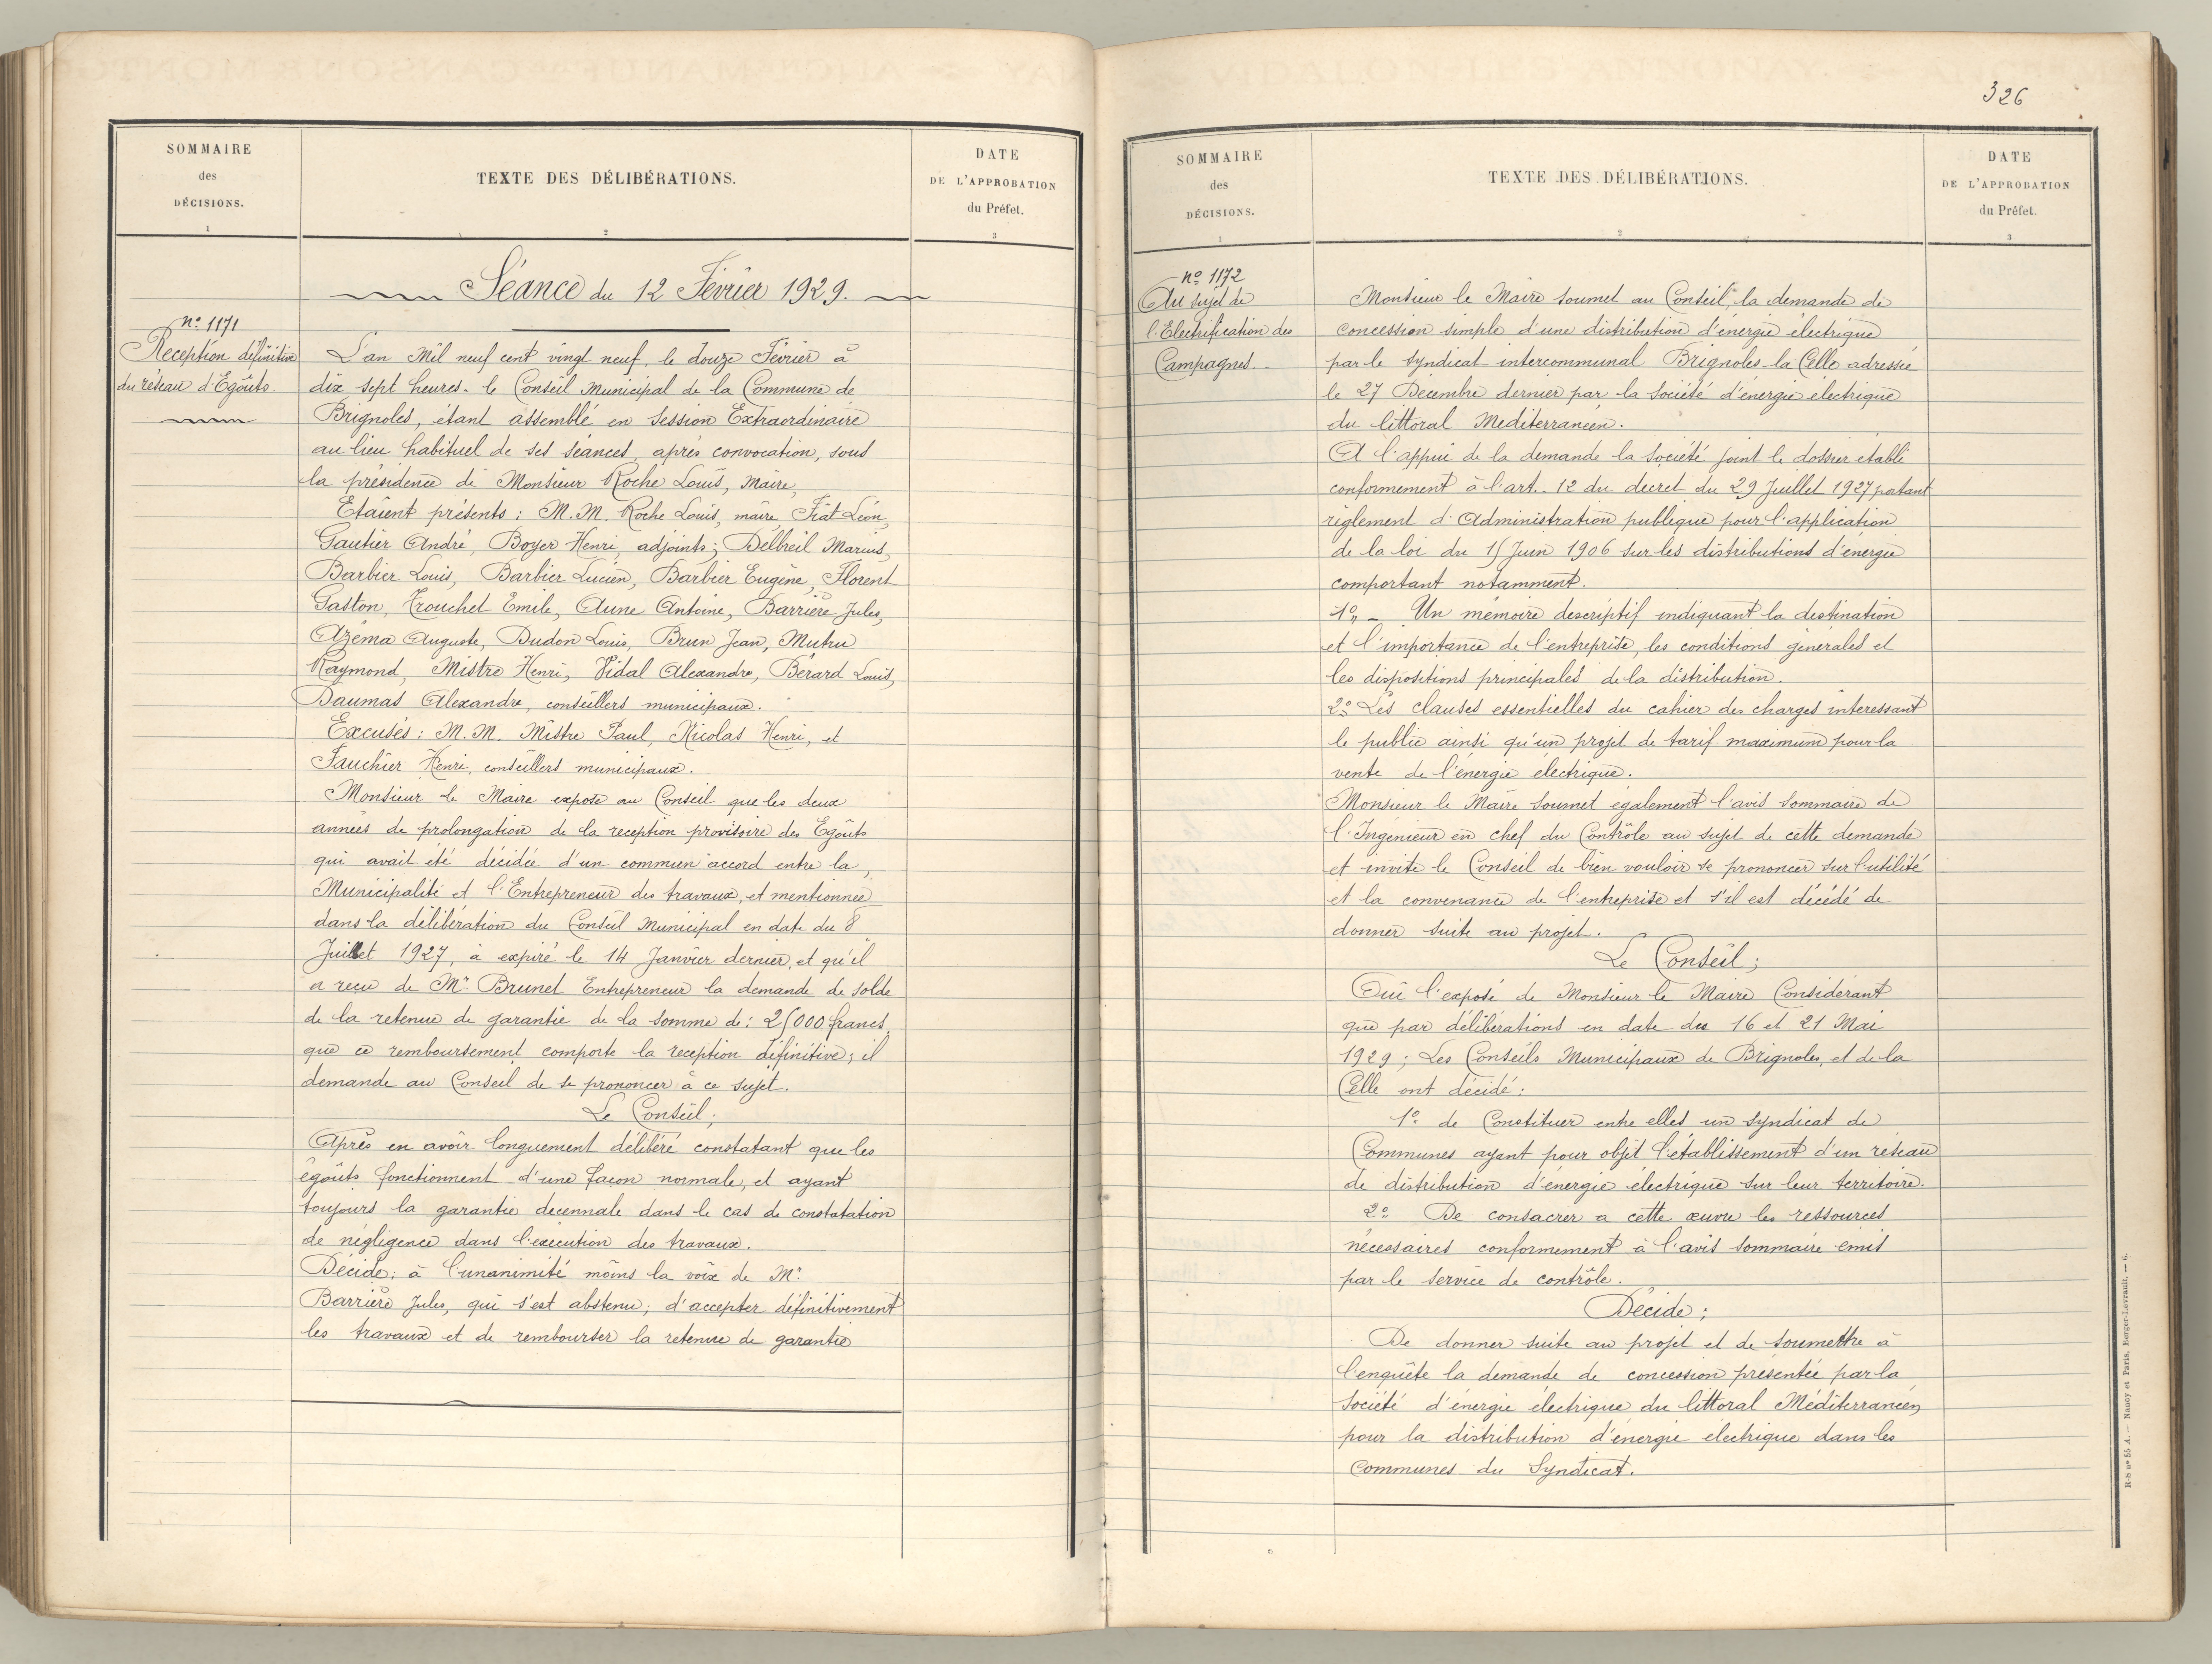 SOMMAIRE
des
DÉCISIONS.
1
TEXTE DES DÉLIBÉRATIONS.
2
DATE
DE L'APPROBATION
du Préfet.
3
Séance du 12 Février 1929.
nº 1171
Réception définitive
du réseau d'Egoûts.
L'an Mil neuf cent vingt neuf, le douze Février à
dix sept heures. le Conseil Municipal de la Commune de
Brignoles, étant assemblé en Session Extraordinaire
au lieu habituel de ses séances, après convocation, sous
la présidence de Monsieur Roche Louis, Maire,
Etaient présents : M.M. Roche Louis, maire, Fiat Léon,
Gautier André, Boyer Henri, adjoints; Delbreil Marius,
Barbier Louis, Barbier Lucien, Barbier Eugène, Florent
Gaston, Trouchet Emile, Aune Antoine, Barrière Jules,
Azéma Auguste, Dudon Louis, Brun Jean, Mutru
Raymond, Mistre Henri, Vidal Alexandre, Bérard Louis,
Daumas Alexandre, conseillers municipaux.
Excusés : M.M. Mistre Paul, Nicolas Henri, et
Fauchier Henri, conseillers municipaux.
Monsieur le Maire expose au Conseil que les deux
années de prolongation de la reception provisoire des Egoûts
qui avait été décidée d'un commun accord entre la
Municipalité et l'Entrepreneur des travaux, et mentionnée
dans la délibération du Conseil Municipal en date du 8
Juillet 1927, a expiré le 14 Janvier dernier, et qu'il
a reçu de Mr Brunet Entrepreneur la demande de solde
de la retenue de garantie de la somme de : 25000 francs,
que ce remboursement comporte la reception définitive; il
demande au Conseil de se prononcer à ce sujet.
Le Conseil;
Après en avoir longuement délibéré constatant que les
égoûts fonctionnent d'une façon normale, et ayant
toujours la garantie decennale dans le cas de constatation
de négligence dans l'exécution des travaux.
Décide; à l'unanimité moins la voix de Mr
Barrière Jules, qui s'est abstenu; d'accepter définitivement
les travaux et de rembourser la retenue de garantie
326
SOMMAIRE
des
DÉCISIONS.
1
TEXTE DES DÉLIBÉRATIONS.
2
DATE
DE L'APPROBATION
du Préfet.
3
nº 1172
Au sujet de
l'Electrification des
Campagnes.
Monsieur le Maire soumet au Conseil, la demande de
concession simple d'une distribution d'énergie électrique
par le syndicat intercommunal Brignoles-la Celle adressée
le 27 Décembre dernier par la Société d'énergie électrique
du littoral Mediterranéen.
A l'appui de la demande la Société joint le dossier établi
conformement à l'art. 12 du decret du 29 Juillet 1927 portant
règlement d'Administration publique pour l'application
de la loi du 15 Juin 1906 sur les distributions d'énergie
comportant notamment.
1º - Un mémoire descriptif indiquant la destination
et l'importance de l'entreprise, les conditions générales et
les dispositions principales de la distribution.
2º Les clauses essentielles du cahier des charges interessant
le public ainsi qu'un projet de tarif maximum pour la
vente de l'énergie électrique.
Monsieur le Maire soumet également l'avis sommaire de
l'Ingénieur en chef du Contrôle au sujet de cette demande
et invite le Conseil de bien vouloir se prononcer sur l'utilité
et la convenance de l'entreprise et s'il est décédé de
donner suite au projet.
Le Conseil;
Ouï l'exposé de Monsieur le Maire Considérant
que par délibérations en date des 16 et 21 Mai
1929; Les Conseils Municipaux de Brignoles, et de la
Celle ont décidé :
1º de Constituer entre elles un syndicat de
Communes ayant pour objet l'établissement d'un réseau
de distribution d'énergie électrique sur leur territoire.
2º De consacrer a cette œuvre les ressources
nécessaires conformement à l'avis sommaire emis
par le service de contrôle.
Décide;
De donner suite au projet et de soumettre à
l'enquête la demande de concession présentée par la
Société d'énergie électrique du littoral Méditerranéen
pour la distribution d'énergie électrique dans les
Communes du Syndicat.
R-S nº 55 A. — Nancy et Paris, Berger-Levrault. — 6.